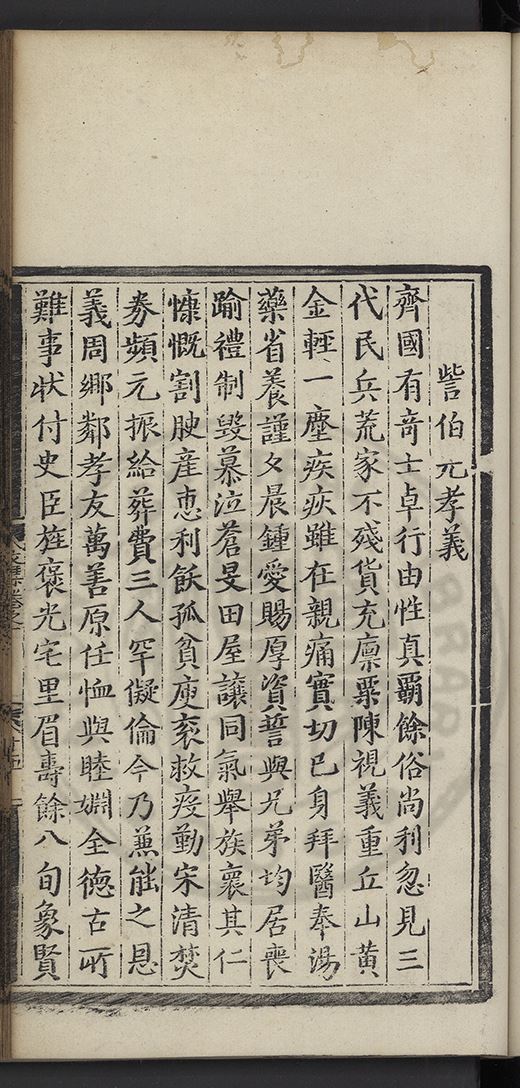 訾伯亢孝義
齊國有竒士卓行由性真霸餘俗尚利忽見三
代民兵荒家不殘貨充廪粟陳視義重丘山黄
金輕一塵疾疢雖在親痛實切已身拜醫奉湯
藥省養謹夕晨鍾愛賜厚資誓與兄弟均居喪
踰禮制毀慕泣蒼旻田屋讓同氣舉族褱其仁
慷慨割腴産恵利飫孤貧䆩救疫勤宋清焚
券頻元振給葬費三人罕儗倫今乃蒹能之恩
義周鄉鄰孝友萬善原任恤與睦婣全徳古所
難事状付史臣旌褒光宅里眉壽餘八旬象賢